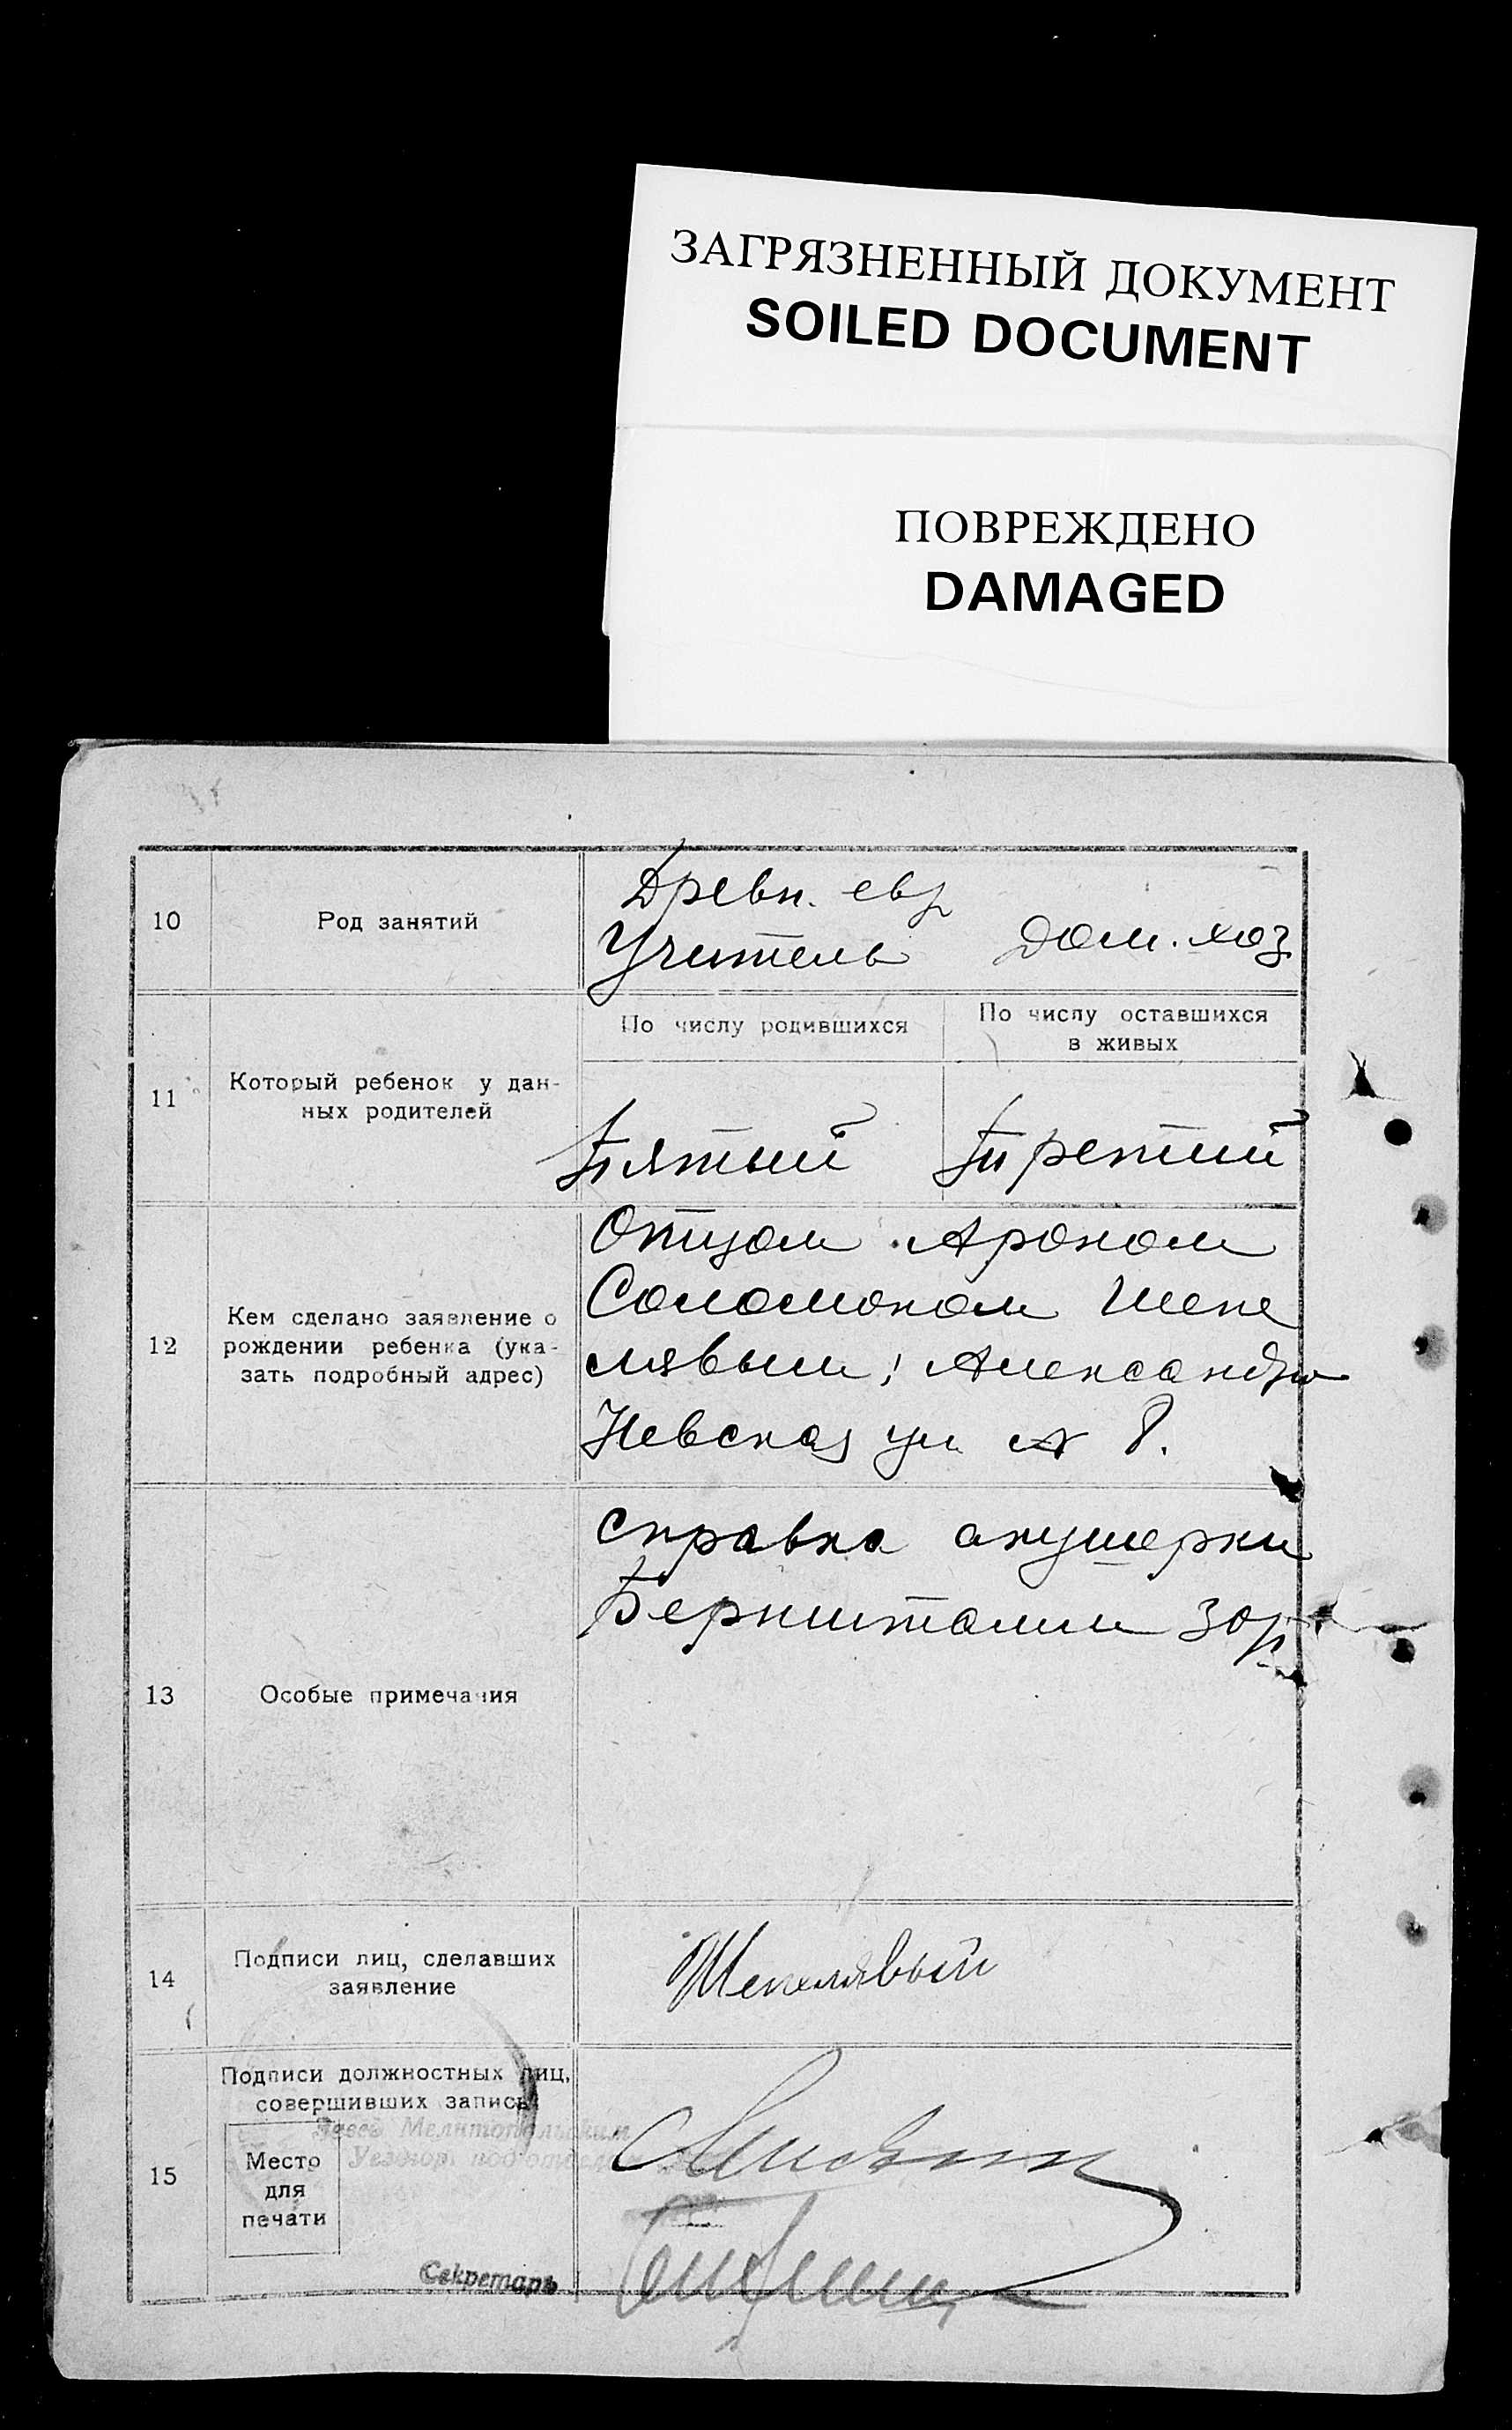 ЗАГРЯЗНЕННЫЙ ДОКУМЕНТ
SOILED DOCUMENT
ПОВРЕЖДЕНО
DAMAGED
10
Род занятий
Древн. евр
Учитель
Дом. хоз
11
Который ребенок у дан-
ных родителей
По числу родившихся
По числу оставшихся
в живых
Пятый
Третий
12
Кем сделано заявление о
рождении ребенка (ука-
зать подробный адрес)
Отцом Ароном
Соломоном Шепе
лявым; Александро
Невская ул № 8.
13
Особые примечания
справка акушерки
14
Подписи лиц, сделавших
заявление
Шепелявый
15
Подписи должностных лиц,
совершивших запись
Место
для
печати
Секретарь